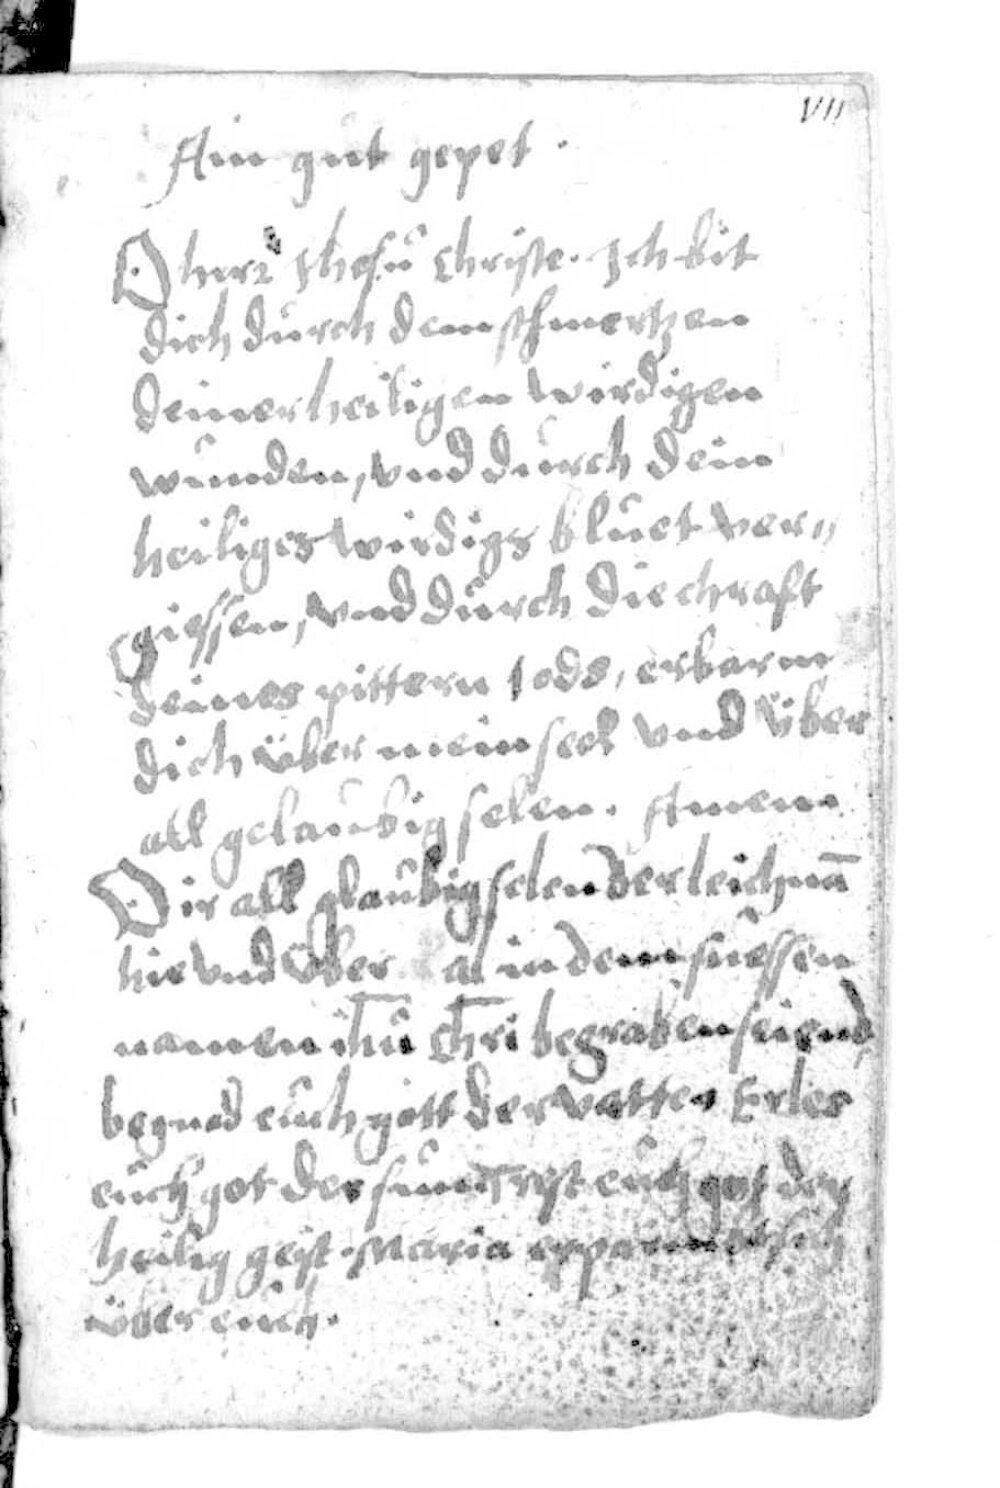 VII
Ain gut gepet.
O herr Jhesu christe. Ich bit
dich durch dein schmertzen
deiner heiligen wirdigen
wunden, vnd durch dein
heiliges wirdigs bluet ver„
giessen, vnd durch die chraft
deines pittern tods, erbarm
dich über mein seel vnd über
all gelaubig selen. Amenn
O ir all glaubig selen der leichnā
hie vnd über al in dem suessen
namen ihū chri begraben seiend
begnad euch gott der vatter Erles
euch got der sun Tröst euch got der
heilig geist. Maria erparm sich
über euch.